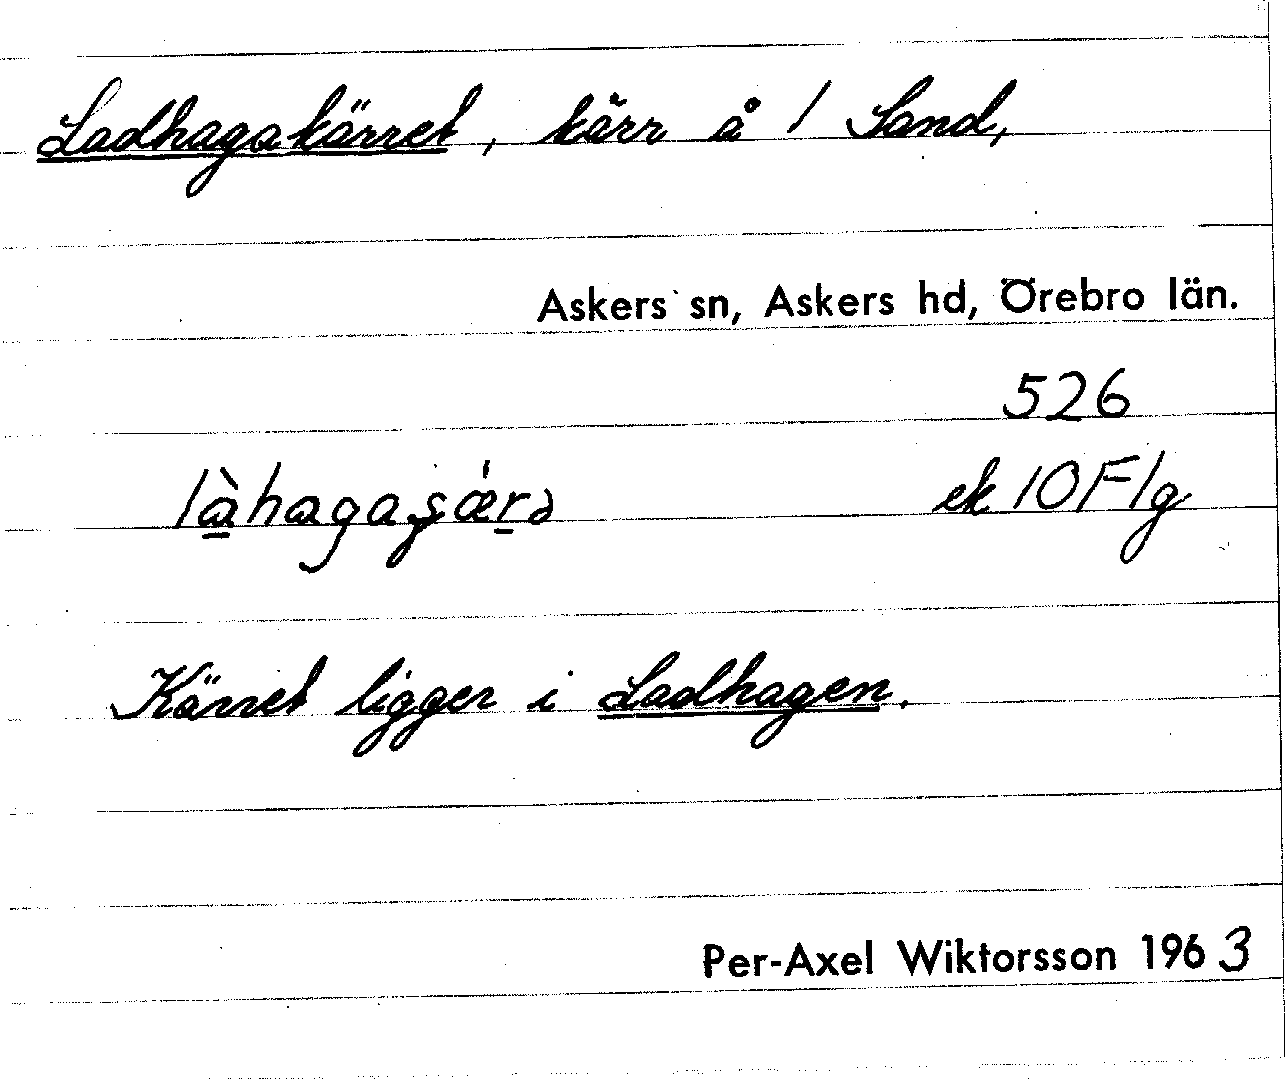 Ladhagakärret, kärr å 1 Sand,
Askers sn, Askers hd, Örebro län.
526
làhagaʂǽrə ek 10F1g
Kärret ligger i Ladhagen.
Per-Axel Wiktorsson 1963